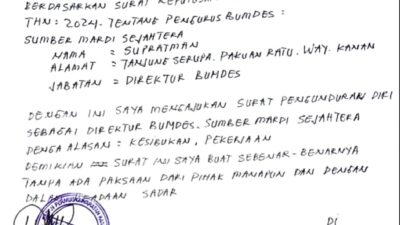 BERDASARKAN SURAT KEPUTUSAN
THN: 2024. TENTANG PENGURUS BUMDES:
SUMBER MARDI SEJAHTERA
NAMA = SUPRATMAN
ALAMAT = TANJUNG SERUPA. PAKUAN RATU. WAY. KANAN
JABATAN = DIREKTUR BUMDES
DENGAN INI SAYA MENGAJUKAN SURAT PENGUNDURAN DIRI
SEBAGAI DIREKTUR BUMDES. SUMBER MARDI SEJAHTERA
DENGA ALASAN = KESIBUKAN, PEKERJAAN
DEMIKIAN SURAT INI SAYA BUAT SEBENAR-BENARNYA
TANPA ADA PAKSAAN DARI PIHAK MANAPUN DAN DENGAN
DALAM KEADAAN SADAR